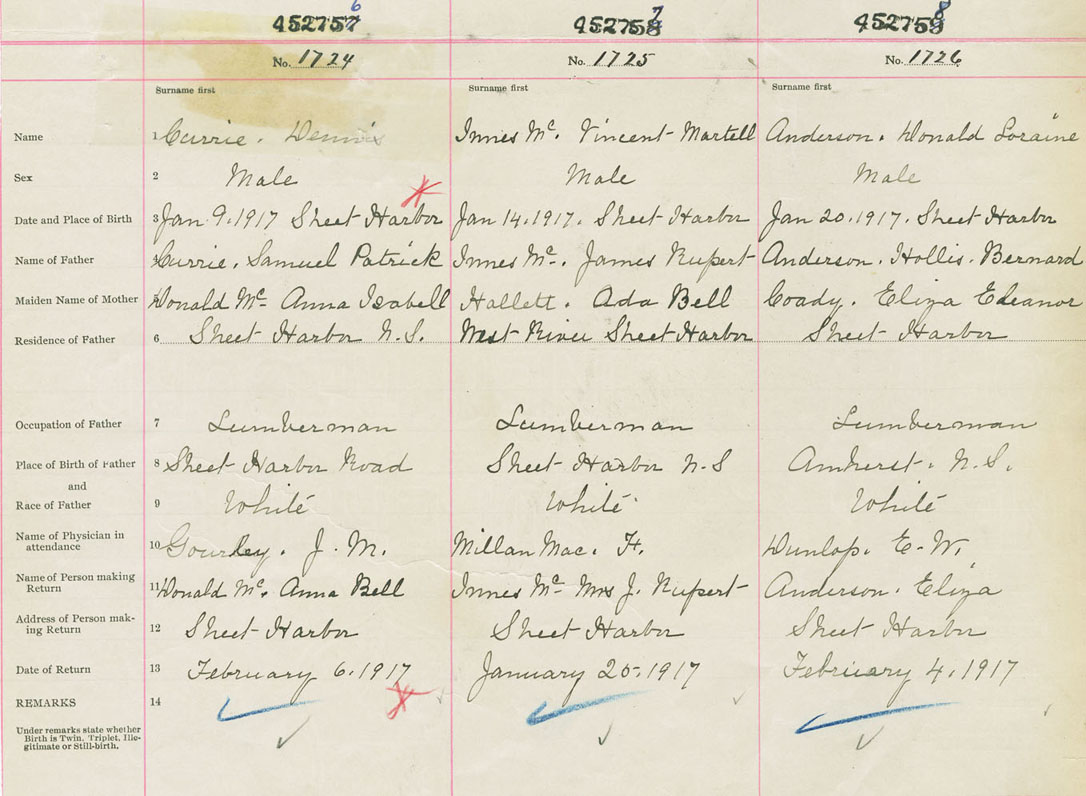 6 7 8
452757 452758 452759
No. 1724 No. 1725 No. 1726
Surname first Surname first Surname first
Name 1 Currie. Dennis Innes Mc. Vincent Martell Anderson. Donald Loraine
Sex 2 Male Male Male
Date and Place of Birth 3 Jan 9.1917 Sheet Harbor Jan 14.1917. Sheet Harbor Jan 20.1917. Sheet Harbor
Name of Father 4 Currie. Samuel Patrick Innes Mc. James Rupert Anderson. Hollis. Bernard
Maiden Name of Mother 5 Donald Mc Anna Isabell Hallett. Ada Bell Coady. Eliza Eleanor
Residence of Father 6 Sheet Harbor N.S. West River Sheet Harbor Sheet Harbor
Occupation of Father 7 Lumberman Lumberman Lumberman
Place of Birth of Father 8 Sheet Harbor Road Sheet Harbor N.S Amherst. N.S.
and
Race of Father 9 White White White
Name of Physician in
attendance 10 Gourley. J. M. Millan Mac. F. Dunlop. E. W.
Name of Person making
Return 11 Donald Mc. Anna Bell Innes Mc Mrs J. Rupert Anderson. Eliza
Address of Person mak-
ing Return 12 Sheet Harbor Sheet Harbor Sheet Harbor
Date of Return 13 February 6.1917 January 25.1917 February 4.1917
REMARKS 14
Under remarks state whether
Birth is Twin. Triplet, Ille-
gitimate or Still-birth.